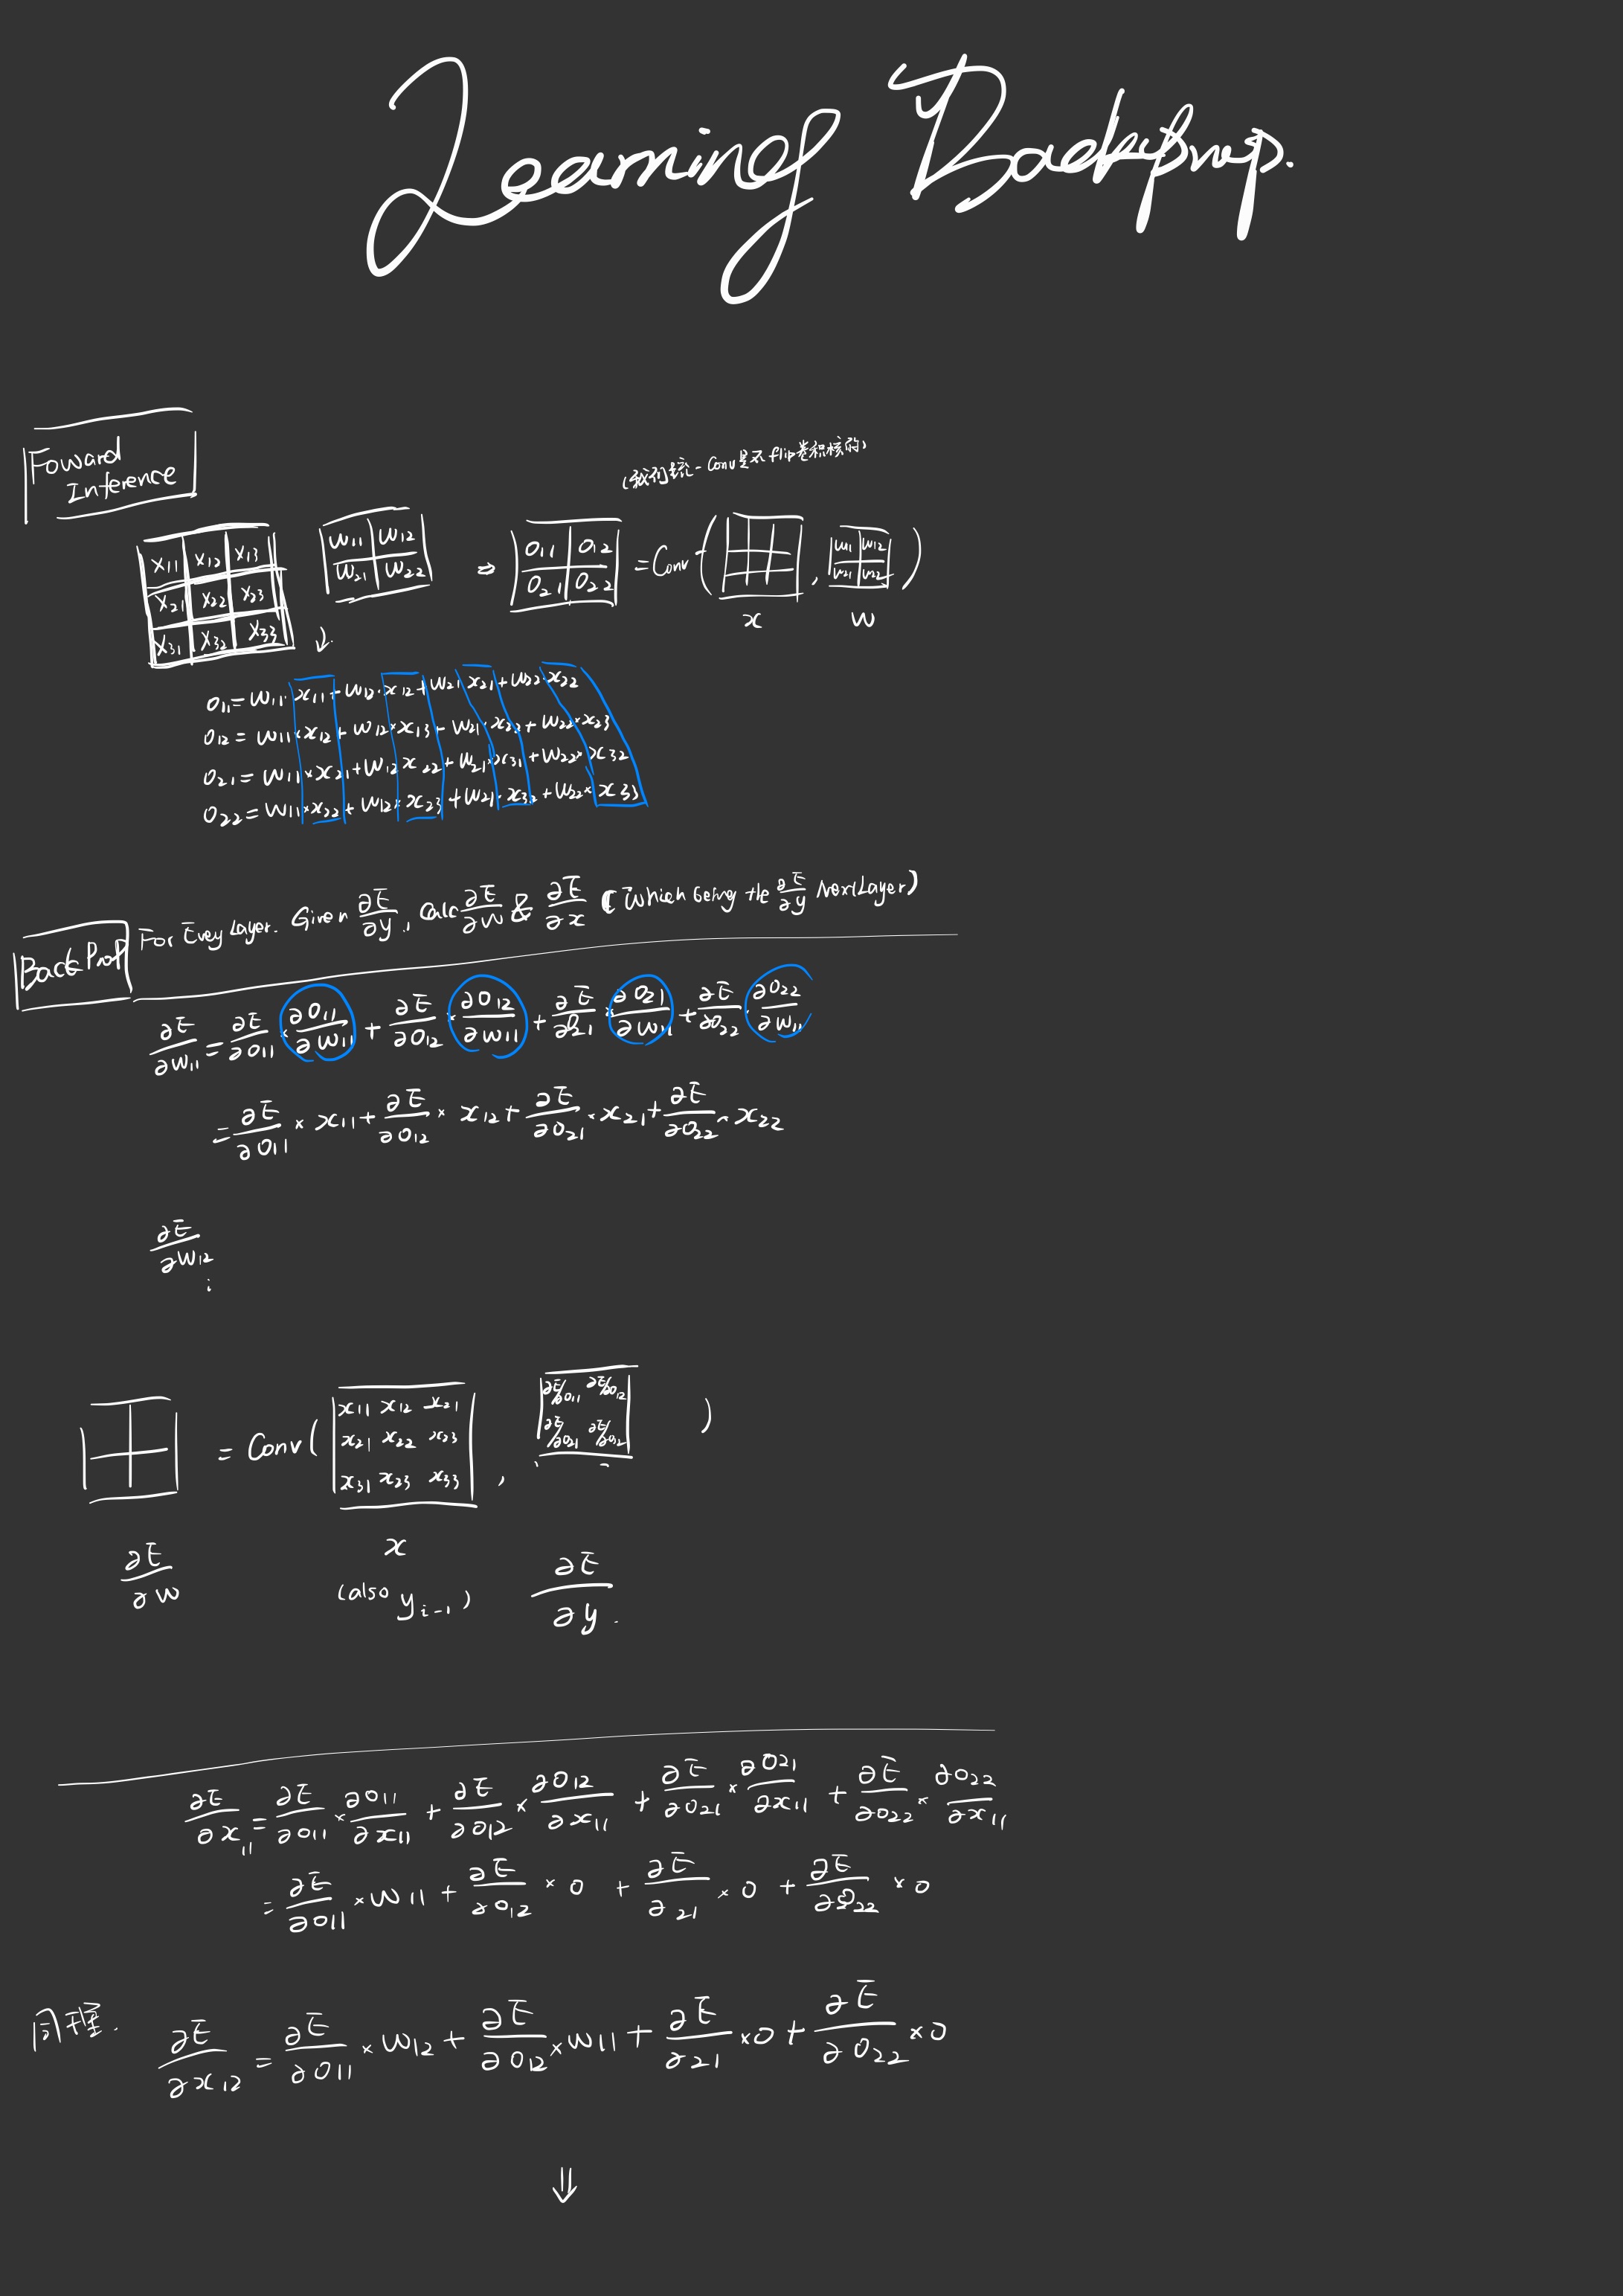 Learning Backprop.
Foward
Inference
(我们统一Conv是不flip卷积核的)
x11 x12 x13
x21 x22 x23
x31 x32 x33
w11 w12
w21 w22
⇒
O11 O12
O21 O22
= Conv ( , w11 w12 )
w21 w22
x w
↓
O11 = w11 · x11 + w12 · x12 + w21 · x21 + w22 · x22
O12 = w11 × x12 + w12 × x13 + w21 · x22 + w22 × x23
O21 = w11 × x21 + w12 x22 + w21 · x31 + w22 × x32
O22 = w11 × x22 + w12 × x23 + w21 · x32 + w22 × x33
Back Prop
For Evey Layer. Given ∂E/∂y, Calc ∂E/∂w & ∂E/∂x (Which being the ∂E/∂y Next Layer)
∂E/∂w11 = ∂E/∂O11 × ∂O11/∂w11 + ∂E/∂O12 × ∂O12/∂w11 + ∂E/∂O21 × ∂O21/∂w11 + ∂E/∂O22 · ∂O22/∂w11
= ∂E/∂O11 × x11 + ∂E/∂O12 × x12 + ∂E/∂O21 × x21 + ∂E/∂O22 · x22
∂E/∂w12
⋮
= Conv ( x11 x12 x21 , ∂E/∂O11 ∂E/∂O12 )
x21 x22 x23 ∂E/∂O21 ∂E/∂O32
x31 x33 x33
∂E/∂w x ∂E/∂y.
(also y i-1)
∂E/∂x11 = ∂E/∂O11 × ∂O11/∂x11 + ∂E/∂O12 × ∂O12/∂x11 + ∂E/∂O21 × ∂O21/∂x11 + ∂E/∂O22 × ∂O22/∂x11
= ∂E/∂O11 × w11 + ∂E/∂O12 × 0 + ∂E/∂21 × 0 + ∂E/∂O22 × 0
同理.
∂E/∂x12 = ∂E/∂O11 × w12 + ∂E/∂O12 × w11 + ∂E/∂21 × 0 + ∂E/∂O22 × 0
⇓